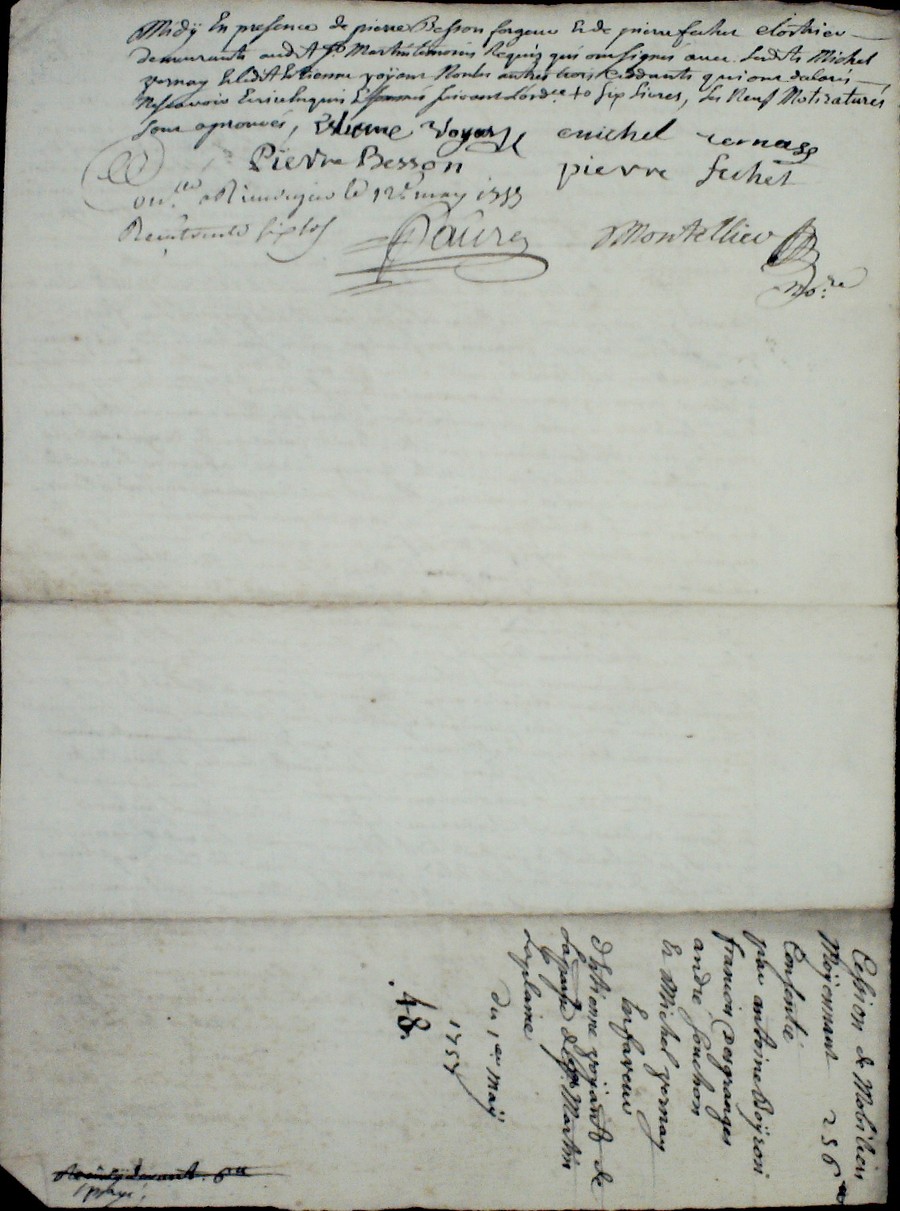 Midÿ En presence de pierre Besson forgeur Et de pierre fechet clostrier
demeurants aud. St. Martin temoins Requis qui ont signés avec Ledit Michel
vernay Et led. Etienne voyant Non les autres trois Cedants qui ont declaré
Ne scavoir Ecrire Enquis Et Sommés suivant L'ord.ce to six livres, Les Neuf Mots raturés
Sont aprouvés, Estienne Voyant michel vernay
Pierre Besson pierre fechet
a Rivedegier le 12e. may
Recu six sols
Faure Montellier
No.re
Cession de Mobiliers
Moyennant 256 tt
Consentie
par antoine
francois Desgranges
andré souchon
Et Michel vernay
En faveur
d'Etienne voyant de
La paroisse de St. Martin
Laplaine
du 1er. maÿ
1757
48.